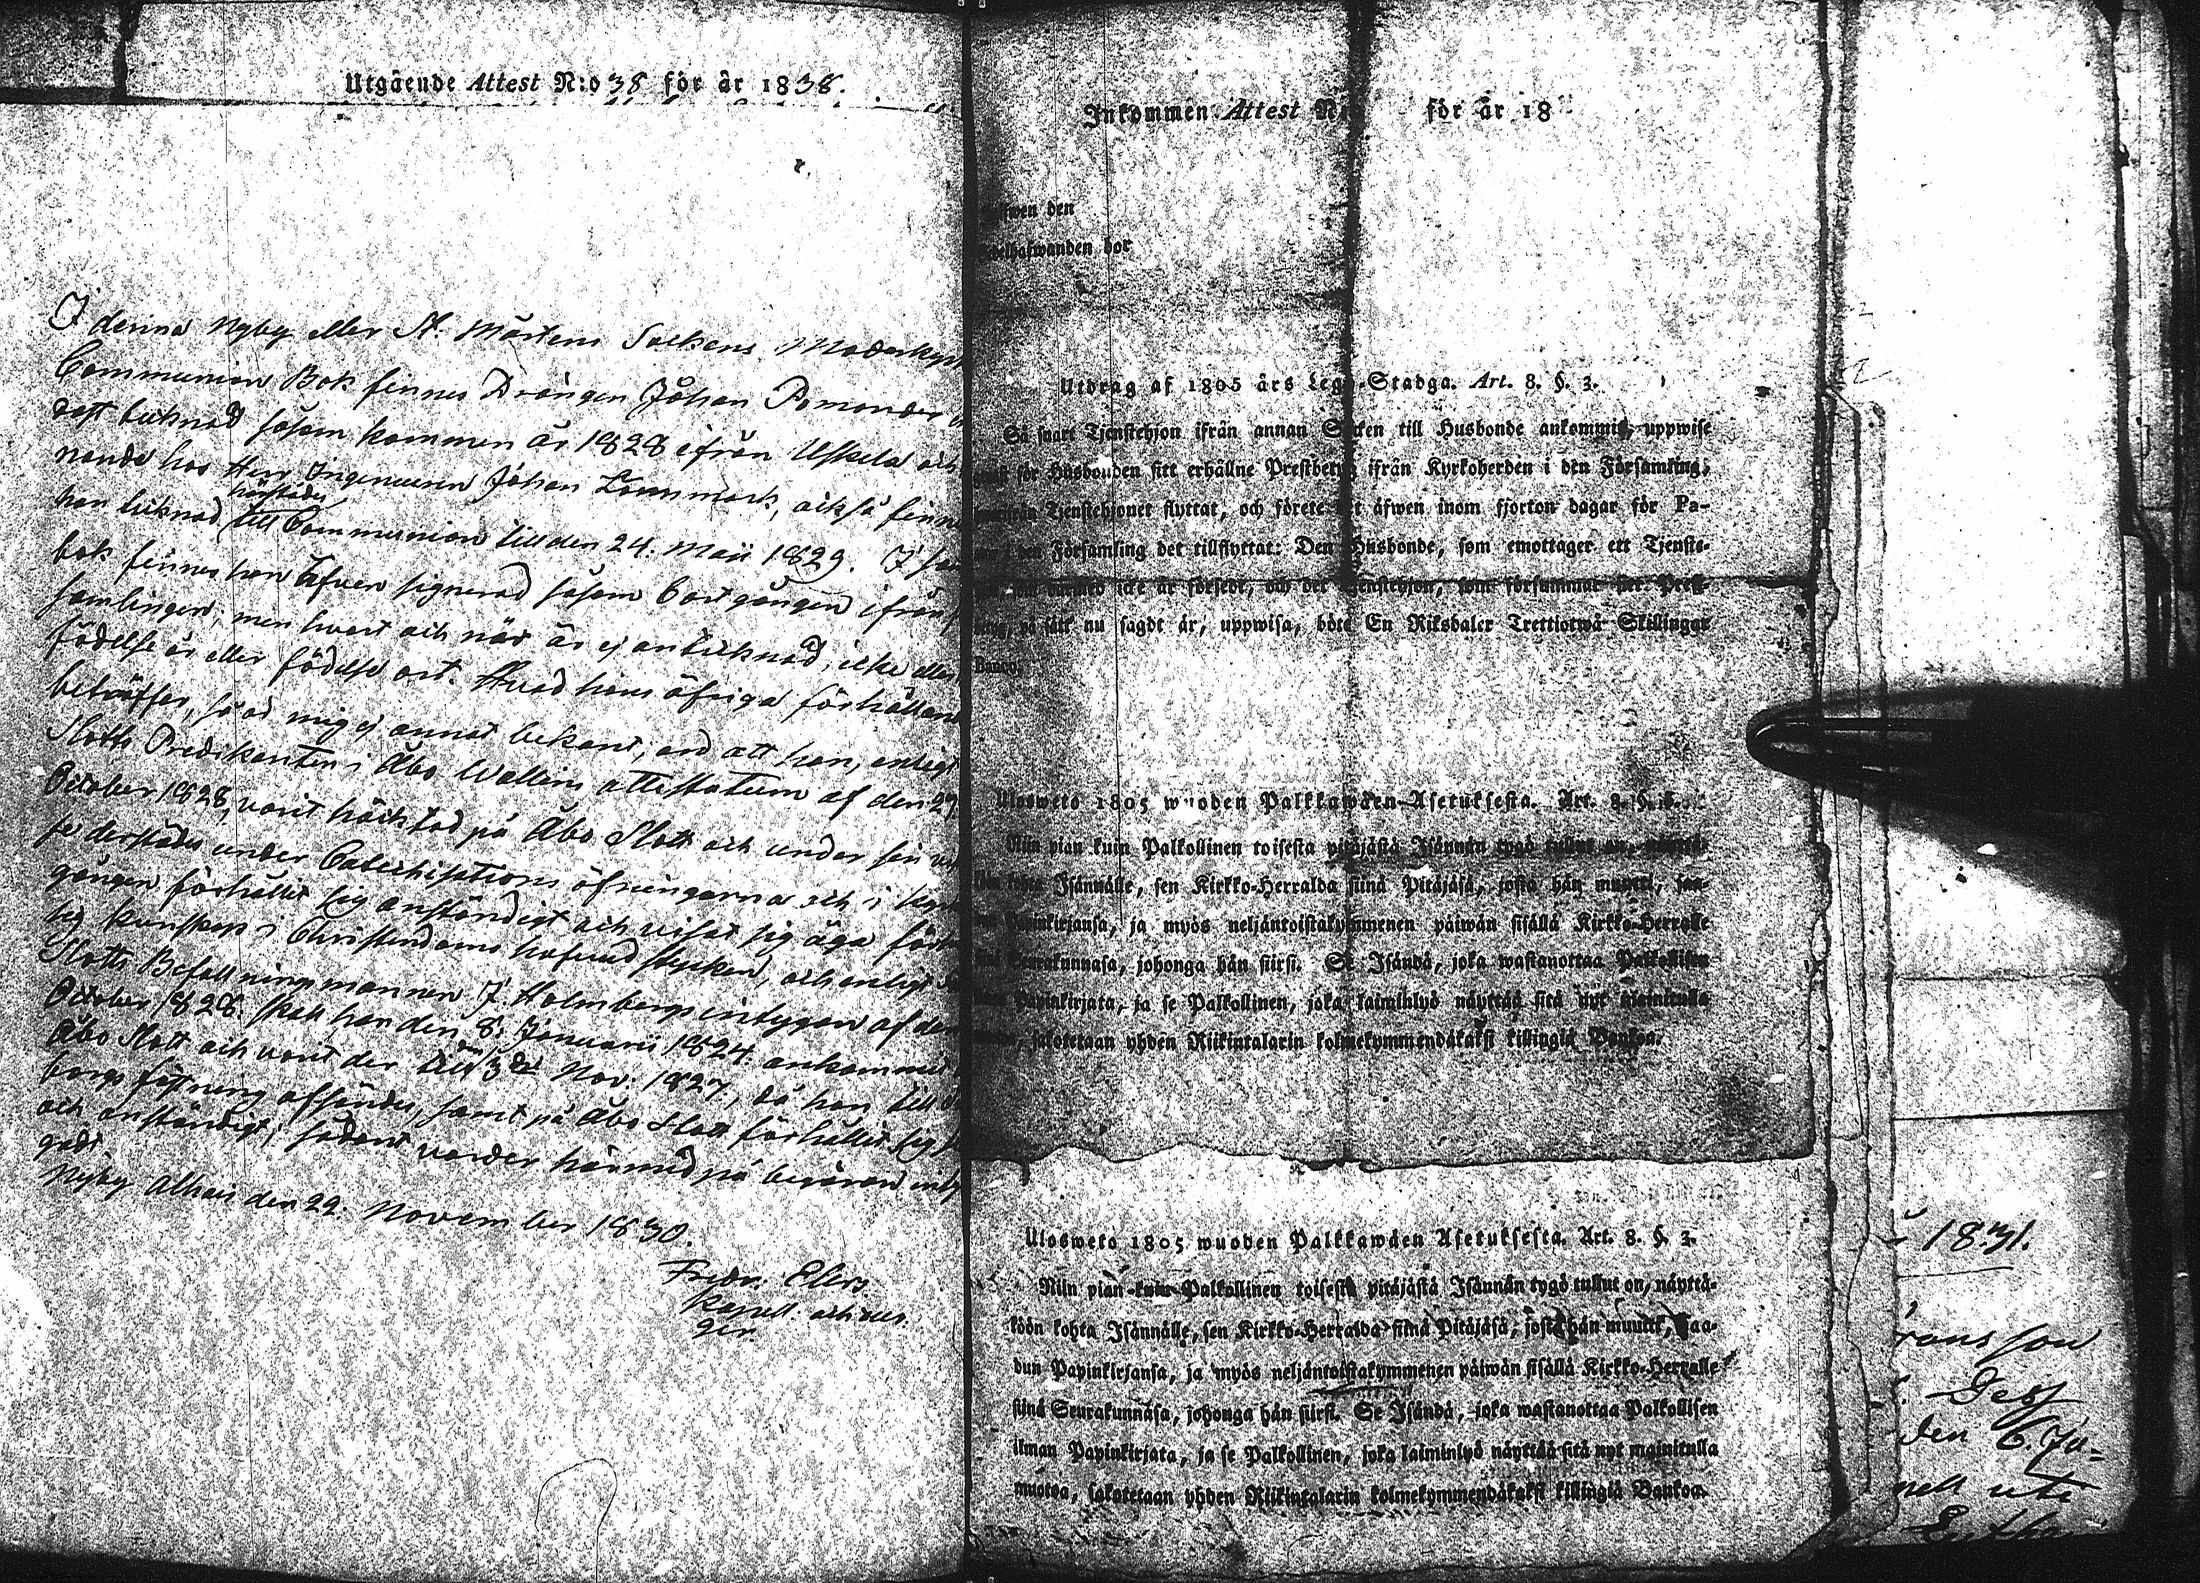 Utgående Attest N:o 38 för år 1838.
I denna Nyby eller St. Mårtens Sockens Moderkyrk
Communion Bok finnes Drängen Johan Pomander
satt tecknad såsom kommen år 1828 ifrån Uskela och
nande hos Herr Ingenieuren Johan Lönnmark, ock så finnes
härstädes
han tecknad till Communion till den 24. Maji 1829. I
bok finnes han äfven signerad såsom bortgången ifrån
samlingen, men hvart och när är ej antecknad, icke eller
födelse år eller födelse ort. Hvad hans öfriga förhållan
beträffer, så är mig ej annat bekant, än att han, enligt
Slotts Predikanten i Åbo Wallins attestatum af den 29
October 1828, varit häcktad på Åbo Slott och under sin
se derstädes under Catechisations öfningarna och i kyrk
gången förhållit sig anständigt och visat sig äga för
sig kunskap i Christendoms hufvud stycken, och enligt
Slotts Befallningsmannen J. Holmbergs intygan af den
October 1828. skall han den 8. Januarii 1824. ankommit
Åbo Slott och varit der till 3de Nov. 1827, då han till
borgs fästning afsändes, samt på Åbo Slott förhållit sig
och anständigt; sådant varder härmed på begäran inty
gadt
Nyby Alhais den 22. November 1830.
Fredr. Elers
Kapell. och
Inkommen Attest N för år 18
wen den
hafwanden hor
Utdrag af 1805 års Lego-Stadga. Art. 8. §. 3.
Så snart Tjenstehjon ifrån annan Socken till Husbonde ankommit, uppwise
för Husbonden sitt erhållne Prestbetyg ifrån Kyrkoherden i den Församling,
Tjenstehjonet flyttat, och förete det äfwen inom fjorton dagar för Pa-
Församling det tillflyttat: Den Husbonde, som emottager ett Tjenste-
icke är försedt, och det Tjenstehjon, som försummar det Prest-
på sätt nu sagdt är, uppwisa, böte En Riksdaler Trettiotwå Skillingar
Banco.
Ulosweto 1805 wuoden Palkkawäen-Asetuksesta. Art. 8. §. 3.
Niin pian kuin Palkollinen toisesta pitäjästä Isännän tygö tullut on, näyttä-
kohta Isännälle, sen Kirkko-Herralda siinä Pitäjäsä, josta hän muutti, saa-
Papinkirjansa, ja myös neljäntoistakymmenen päiwän sisällä Kirkko-Herralle
Seurakunnasa, johonga hän siirsi. Se Isändä, joka wastanottaa Palkollisen
Papinkirjata, ja se Palkollinen, joka laiminlyö näyttää sitä nyt mainitulla
sakotetaan yhden Riikintalarin kolmekymmendäkaksi killingiä Bankoa.
Ulosweto 1805 wuoden Palkkawäen Asetuksesta. Art. 8. §. 3.
Niin pian kuin Palkollinen toisesta pitäjästä Isännän tygö tullut on, näyttä-
köön kohta Isännälle, sen Kirkko-Herralda siinä Pitäjäsä, josta hän muutti, saa-
dun Papinkirjansa, ja myös neljäntoistakymmenen päiwän sisällä Kirkko-Herralle
siinä Seurakunnasa, johonga hän siirsi. Se Isändä, joka wastanottaa Palkollisen
ilman Papinkirjata, ja se Palkollinen, joka laiminlyö näyttää sitä nyt mainitulla
muotoa, sakotetaan yhden Riikintalarin kolmekymmendäkaksi killingiä Bankoa.
1831.
rans son
den 6. Ju-
nell ute